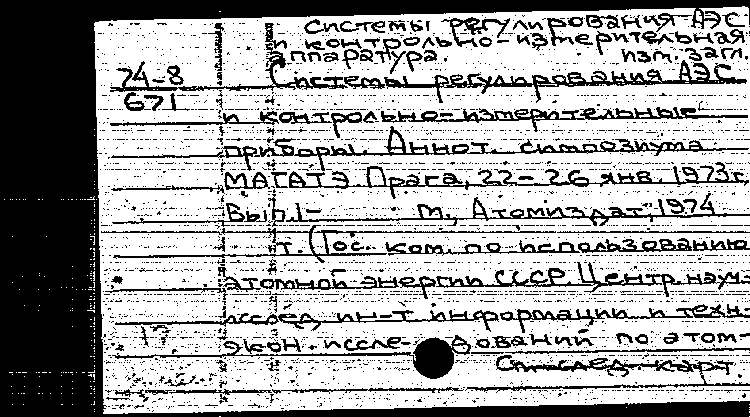 Системы регулирования АЭС
и контрольно-измерительная
аппаратура. изм. загл.
74-8 Системы регулирования АЭС
671
и контрольно-измерительные
приборы. Аннот. симпозиума
МАГАТЭ Прага, 22-26 янв. 1973г.
Вып.1- М., Атомиздат, 1974
т. (Гос. ком. по использованию
атомной энергии СССР. Центр. науч.-
исслед. ин-т информации и техн.-
экон. иссле- дований по атом-
См. след. карт.